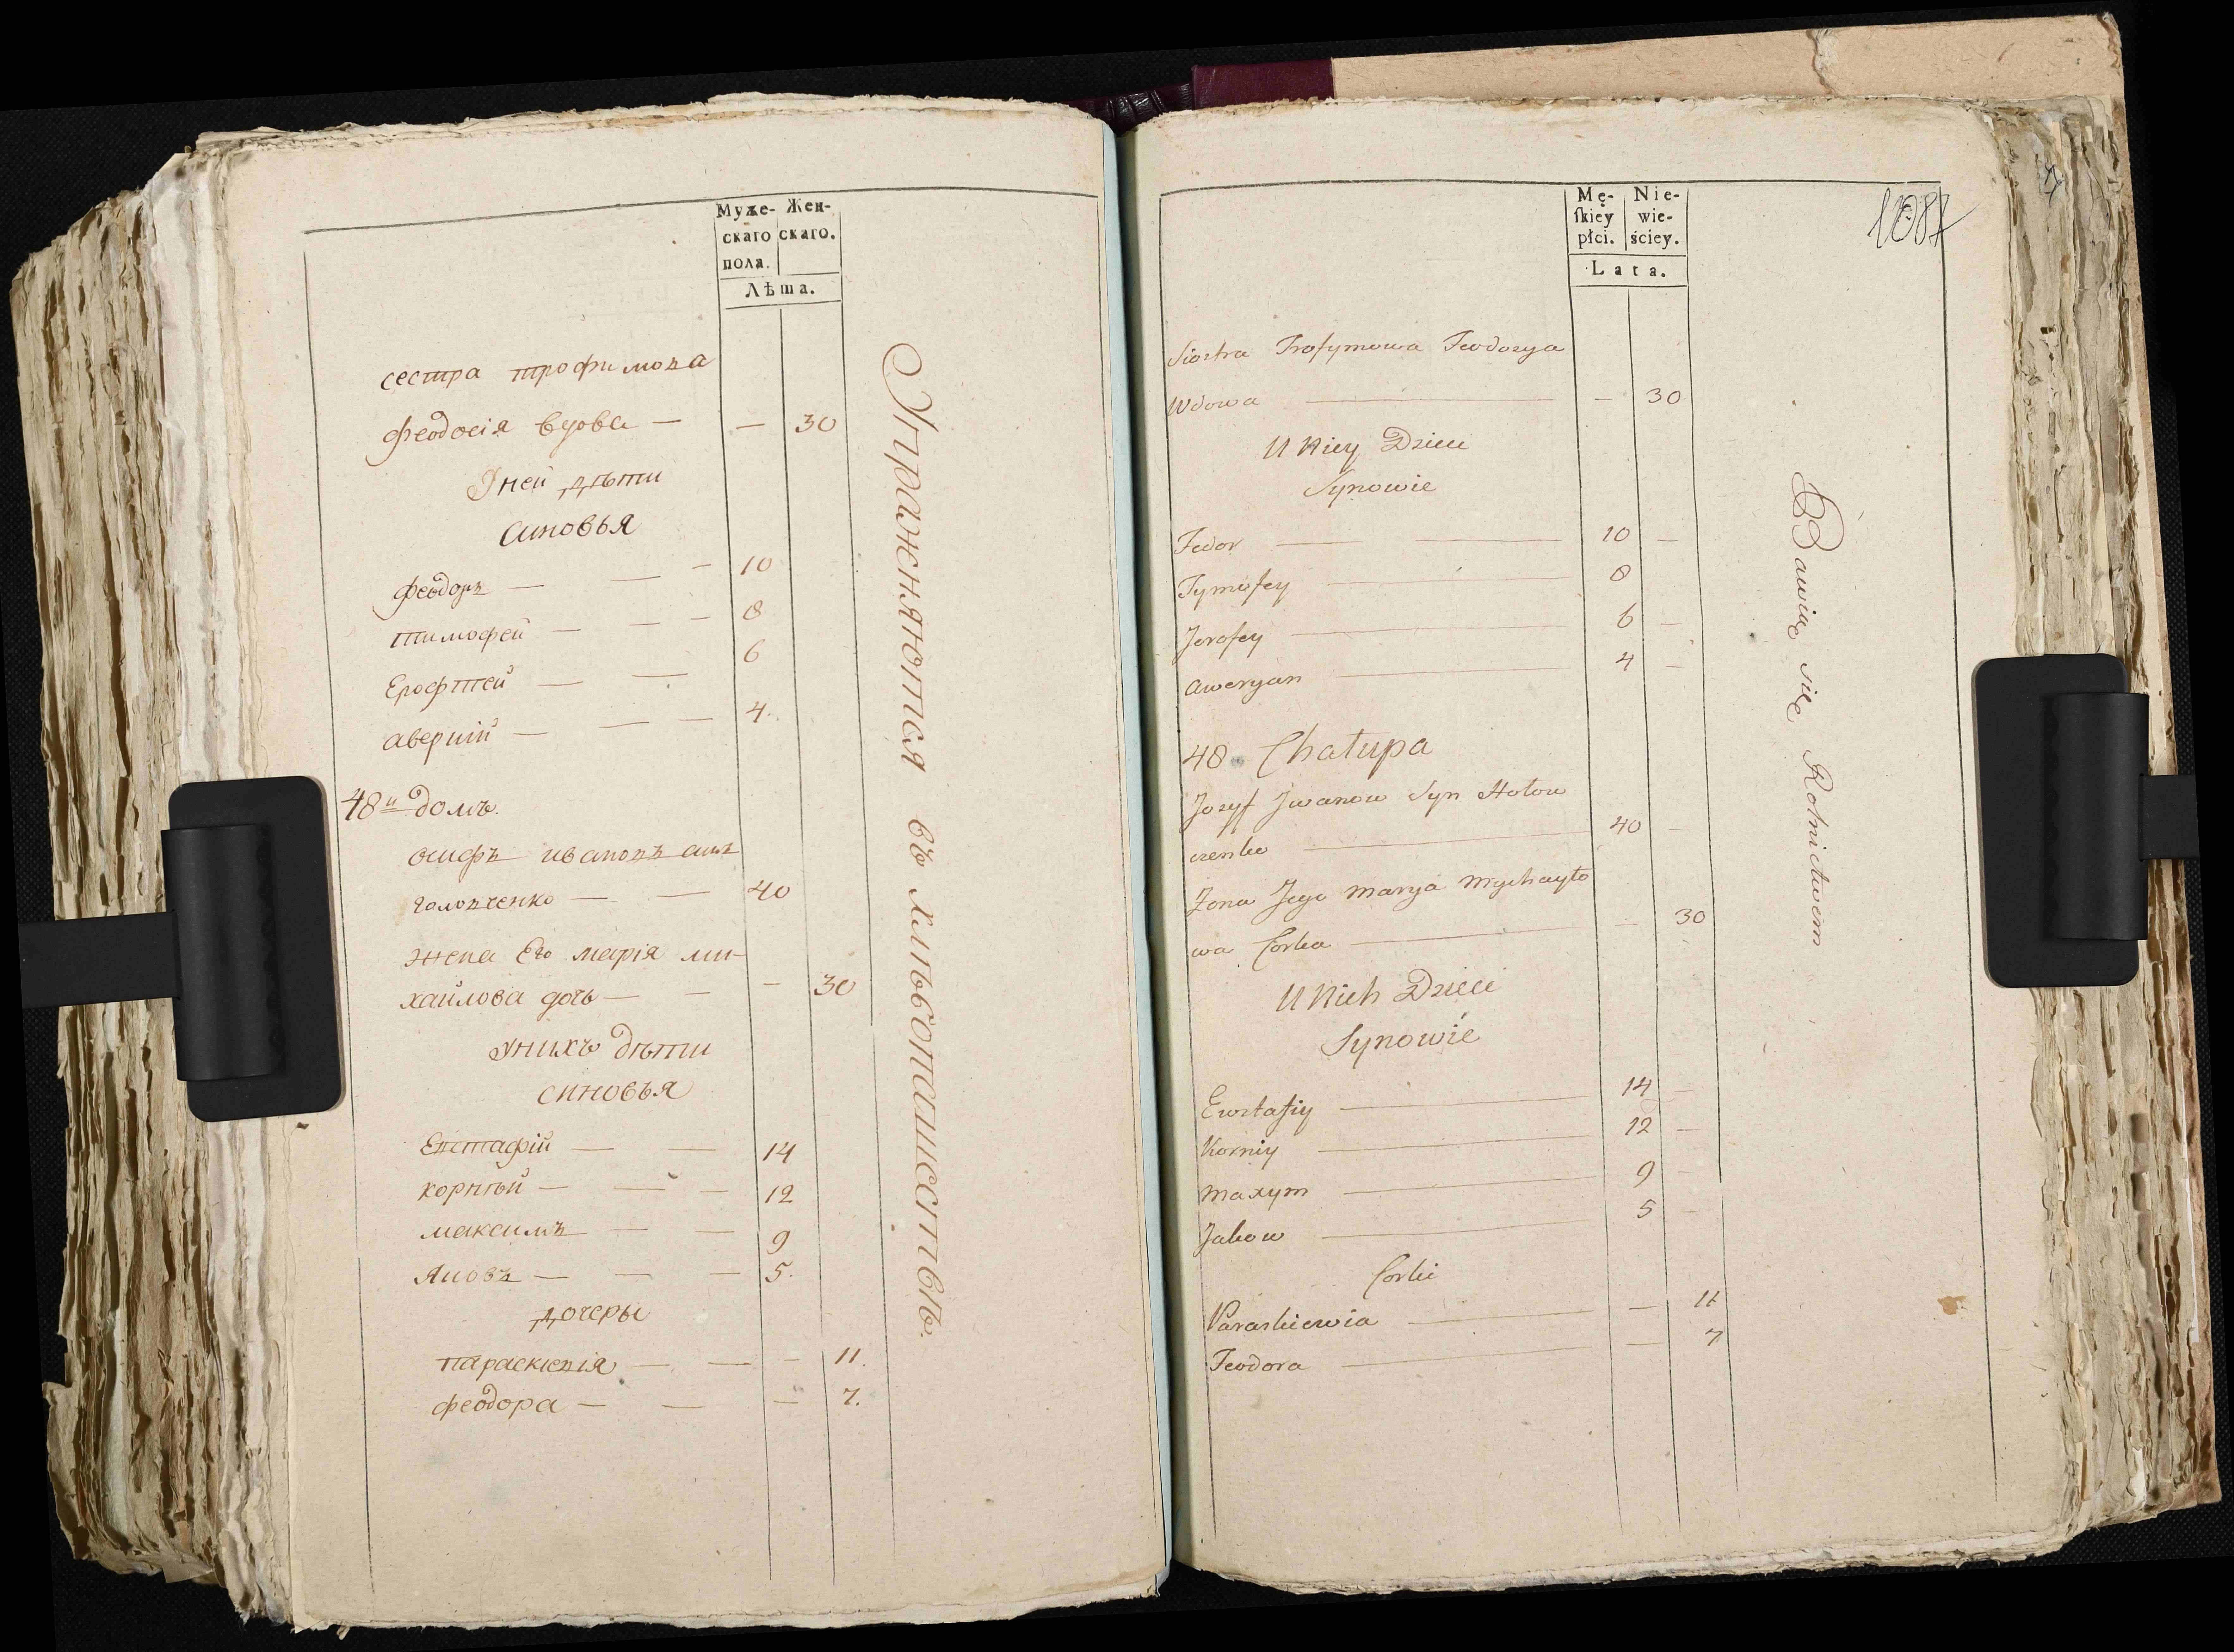 Муже- Жен-
скаго скаго.
пола.
Лѣта.
сестра трофимова
феодосія вдова — — 30
Унеи дѣти
синовья
феодоръ — — — 10
тимофей — — — 8
Ерофтей — — 6
аверкій — — — 4.
48й домъ.
осифъ ивановъ синъ
головченко — — 40
жена Его марія ми-
хайлова дочь — — — 30
Унихъ дѣти
синовья
Евстафій — — 14
корнѣй — — — 12
максимъ — — 9
Яковъ — — — 5.
дочеры
параскіевія — — — 11.
феодора — — — 7.
Упражняются въ хлѣбопашествѣ.
1087
Mę- Nie-
skiey wie-
płci. ściey.
Lata.
Siostra Trofymowa Teodozya
Wdowa — — 30
U Niey Dzieci
Synowie
Fedor — — 10 —
Tymofey — 8
Jerofey — 6 —
Aweryan — 4 —
48 Chałupa
Jozyf Jwanow Syn Hołow
czenko — 40 —
Żona Jego Marya Mychayło
wa Corka — — 30
U Nich Dzieci
Synowie
Ewstafiy — 14 —
Korniy — 12 —
Maxym — 9 —
Jakow — 5 —
Corki
Paraskiewia — — 11
Teodora — — 7
Bawią się Rolnictwem